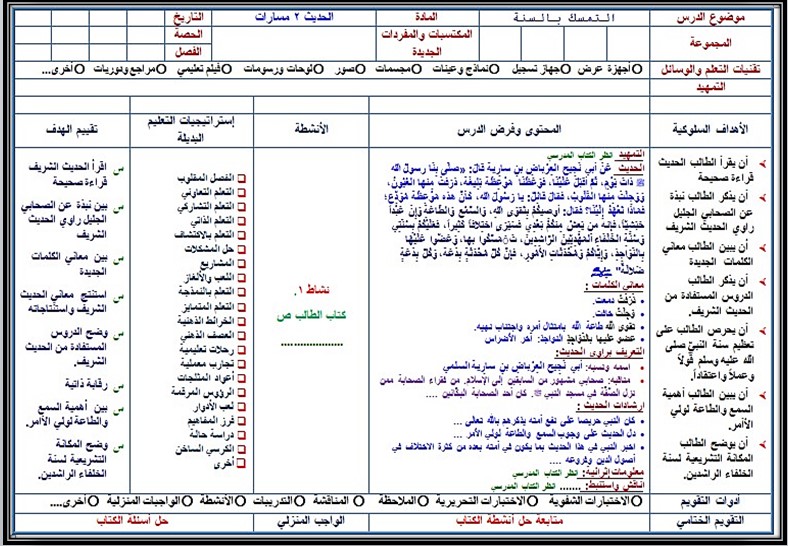 موضوع الدرس
التمسك بالسنة
المادة
الحديث ٢ مسارات
التاريخ
المجموعة
المكتسبات والمفردات
الجديدة
الحصة
الفصل
تقنيات التعلم والوسائل
Oأجهزة عرض Oجهاز تسجيل Oنماذج وعينات Oمجسمات Oصور Oلوحات ورسومات Oفيلم تعليمي Oمراجع ودوريات Oأخرى...
التمهيد
الأهداف السلوكية
المحتوى وفرض الدرس
الأنشطة
إستراتيجيات التعليم
البديلة
تقييم الهدف
أن يقرأ الطالب الحديث
قراءة صحيحة
أن يذكر الطالب نبذة
عن الصحابي الجليل
راوي الحديث الشريف
أن يبين الطالب معاني
الكلمات الجديدة
أن يذكر الطالب
الدروس المستفادة من
الحديث الشريف.
أن يحرص الطالب على
تعظيم سنة النبي صلى
الله عليه وسلم قولاً
وعملاً واعتقاداً.
أن يبين الطالب أهمية
السمع والطاعة لولي
الأمر.
أن يوضح الطالب
المكانة التشريعية لسنة
الخلفاء الراشدين.
التمهيد: انظر الكتاب المدرسي
الحديث عَنْ أبي نَجيح العِرْباض بْنِ سارية قال: «صلّى بنا رسول الله
ﷺ ذات يوم، ثم أقبل علينا، فوعظنا موعظة بليغة، ذرفت منها العيون،
ووجلت منها القلوب، فقال قائل: يا رسول الله، كأن هذه موعظة مودع،
فماذا تعهد إلينا؟ فقال: أوصيكم بتقوى الله، والسمع والطاعة وإن عبداً
حبشياً، فإنه من يعش منكم بعدي فسيرى اختلافاً كثيراً، فعليكم بسنتي
وسنة الخلفاء المهديين الراشدين، تمسكوا بها، وعضوا عليها
بالنواجذ، وإياكم ومحدثات الأمور، فإن كل محدثة بدعة، وكل بدعة
ضلالة"
معاني الكلمات :
ذَرَفَتْ دمعت.
وَجِلَتْ خافت.
تقوى الله طاعة الله بامتثال أمره واجتناب نهيه.
عضو عليها بالنَّواجَذِ النواجذ: آخر الأضراس
التعريف براوي الحديث:
اسمه ونسبه: أبي نَجيح العِرْباض بن سارية السلمي
مناقبه: صحابي مشهور من السابقين إلى الإسلام. من فقراء الصحابة ممن
نزل الصُفّة في مسجد النبي ﷺ. كان أحد الصحابة البكائين ....
إرشادات الحديث :
كان النبي حريصا على نفع أمته يذكرهم بالله تعالى ...
دل الحديث على وجوب السمع والطاعة لولي الأمر ...
اخبر النبي في هذا الحديث بما يكون في أمته بعده من كثرة الاختلاف في
أصول الدين وفروعه ....
معلومات إثرائية: انظر الكتاب المدرسي
أناقش واستنبط: ....... انظر الكتاب المدرسي
نشاط ١.
كتاب الطالب ص
....................
الفصل المقلوب
التعلم التعاوني
التعلم التشاركي
التعلم الذاتي
التعلم بالاكتشاف
حل المشكلات
المشاريع
اللعب والألغاز
التعلم بالنمذجة
التعلم المتمايز
الخرائط الذهنية
العصف الذهني
رحلات تعليمية
تجارب معملية
أعواد المثلجات
الرؤوس المرقمة
لعب الأدوار
فرز المفاهيم
دراسة حالة
الكرسي الساخن
أخرى
س اقرأ الحديث الشريف
قراءة صحيحة
س بين نبذة عن الصحابي
الجليل راوي الحديث
الشريف
س بين معاني الكلمات
الجديدة
س استنتج معاني الحديث
الشريف واستنتاجاته
س وضح الدروس
المستفادة من الحديث
الشريف.
س رقابة ذاتية
س بين أهمية السمع
والطاعة لولي الأمر.
س وضح المكانة
التشريعية لسنة
الخلفاء الراشدين.
أدوات التقويم
Oالاختبارات الشفوية Oالاختبارات التحريرية Oالملاحظة Oالمناقشة Oالتدريبات Oالأنشطة Oالواجبات المنزلية Oأخرى....
التقويم الختامي
متابعة حل أنشطة الكتاب
الواجب المنزلي
حل أسئلة الكتاب